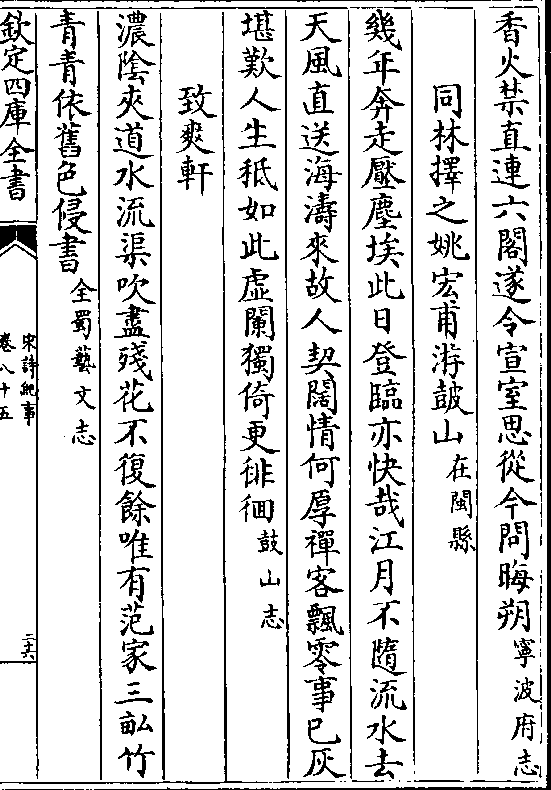 香火禁直連六閣遂令宣室思從今問晦朔寧波府志
同林擇之姚宏甫游鼓山在閩縣
幾年奔走厭塵埃此日登臨亦快哉江月不隨流水去
天風直送海濤來故人契闊情何厚禪客飄零事已灰
堪歎人生秪如此虛闌獨倚更徘徊鼓山志
致爽軒
濃陰夾道水流渠吹盡殘花不復餘唯有范家三畝竹
青青依舊色侵書全蜀藝文志
欽定四庫全書
宋詩紀事
卷八十五
三六